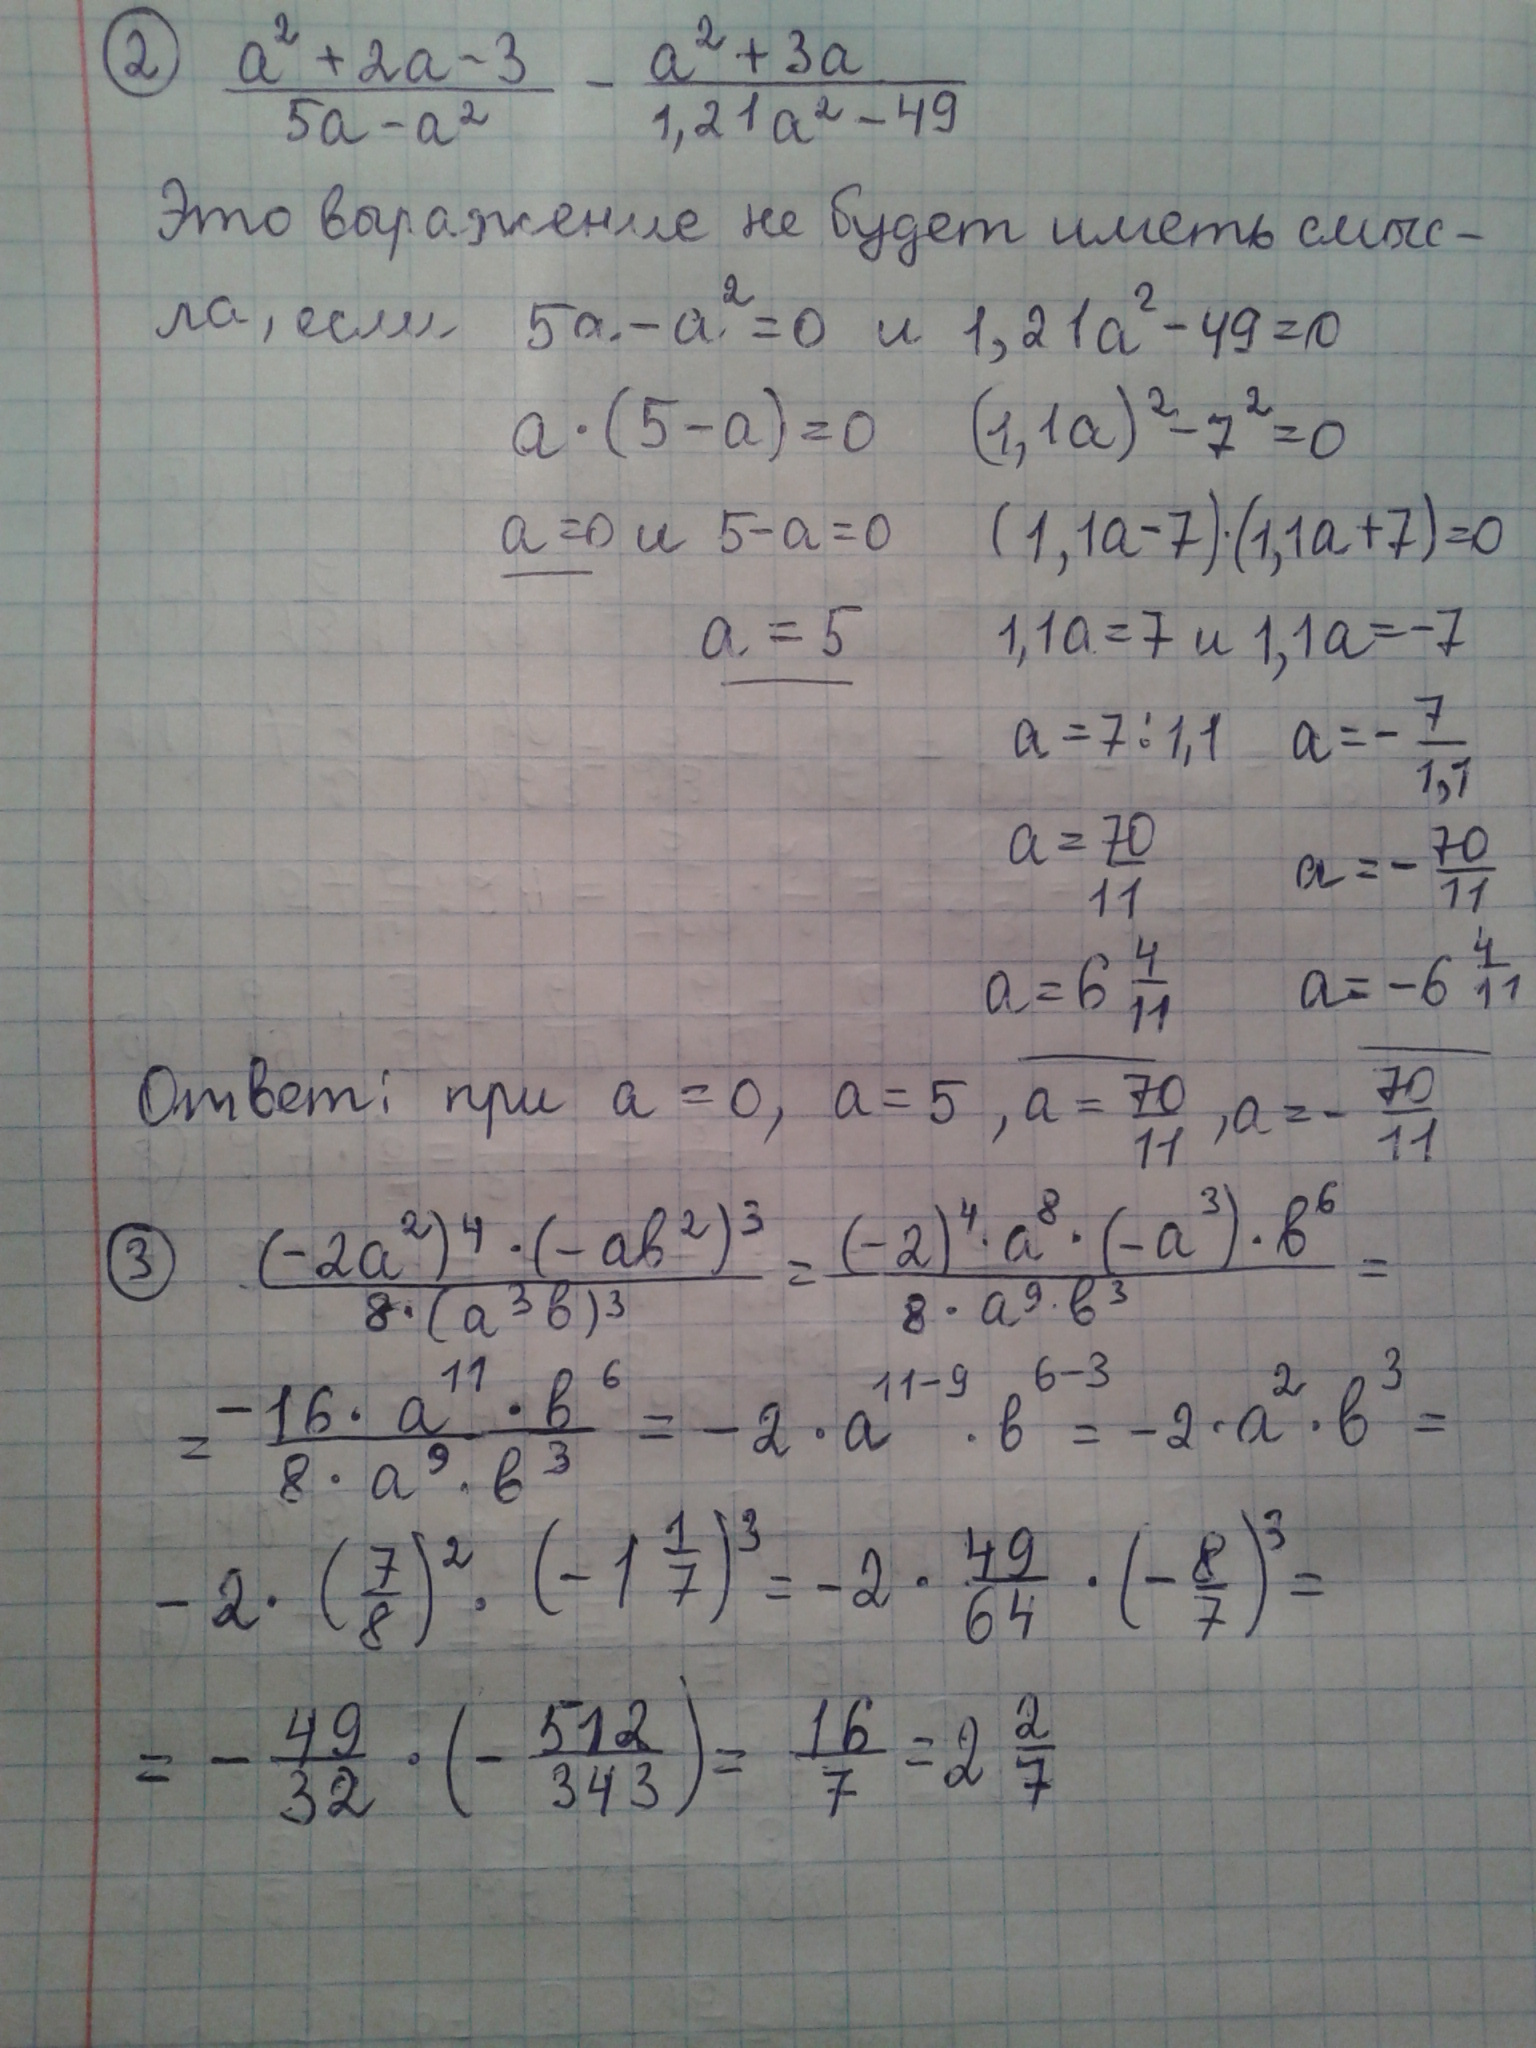 ② (a² + 2a - 3)/(5a - a²) - (a² + 3a)/(1,21a² - 49)
Это выражение не будет иметь смыс-
ла, если 5a - a² = 0 и 1,21a² - 49 = 0
a · (5 - a) = 0 (1,1a)² - 7² = 0
a = 0 и 5 - a = 0 (1,1a - 7) · (1,1a + 7) = 0
a = 5 1,1a = 7 и 1,1a = -7
a = 7 : 1,1 a = - 7/1,1
a = 70/11 a = - 70/11
a = 6 4/11 a = -6 4/11
Ответ: при a = 0, a = 5, a = 70/11, a = - 70/11
③ ((-2a²)⁴ · (-ab²)³)/(8 · (a³b)³) = ((-2)⁴ · a⁸ · (-a³) · b⁶)/(8 · a⁹ · b³) =
= (-16 · a¹¹ · b⁶)/(8 · a⁹ · b³) = -2 · a¹¹⁻⁹ · b⁶⁻³ = -2 · a² · b³ =
-2 · (7/8)² · (-1 1/7)³ = -2 · 49/64 · (-8/7)³ =
= - 49/32 · (- 512/343) = 16/7 = 2 2/7